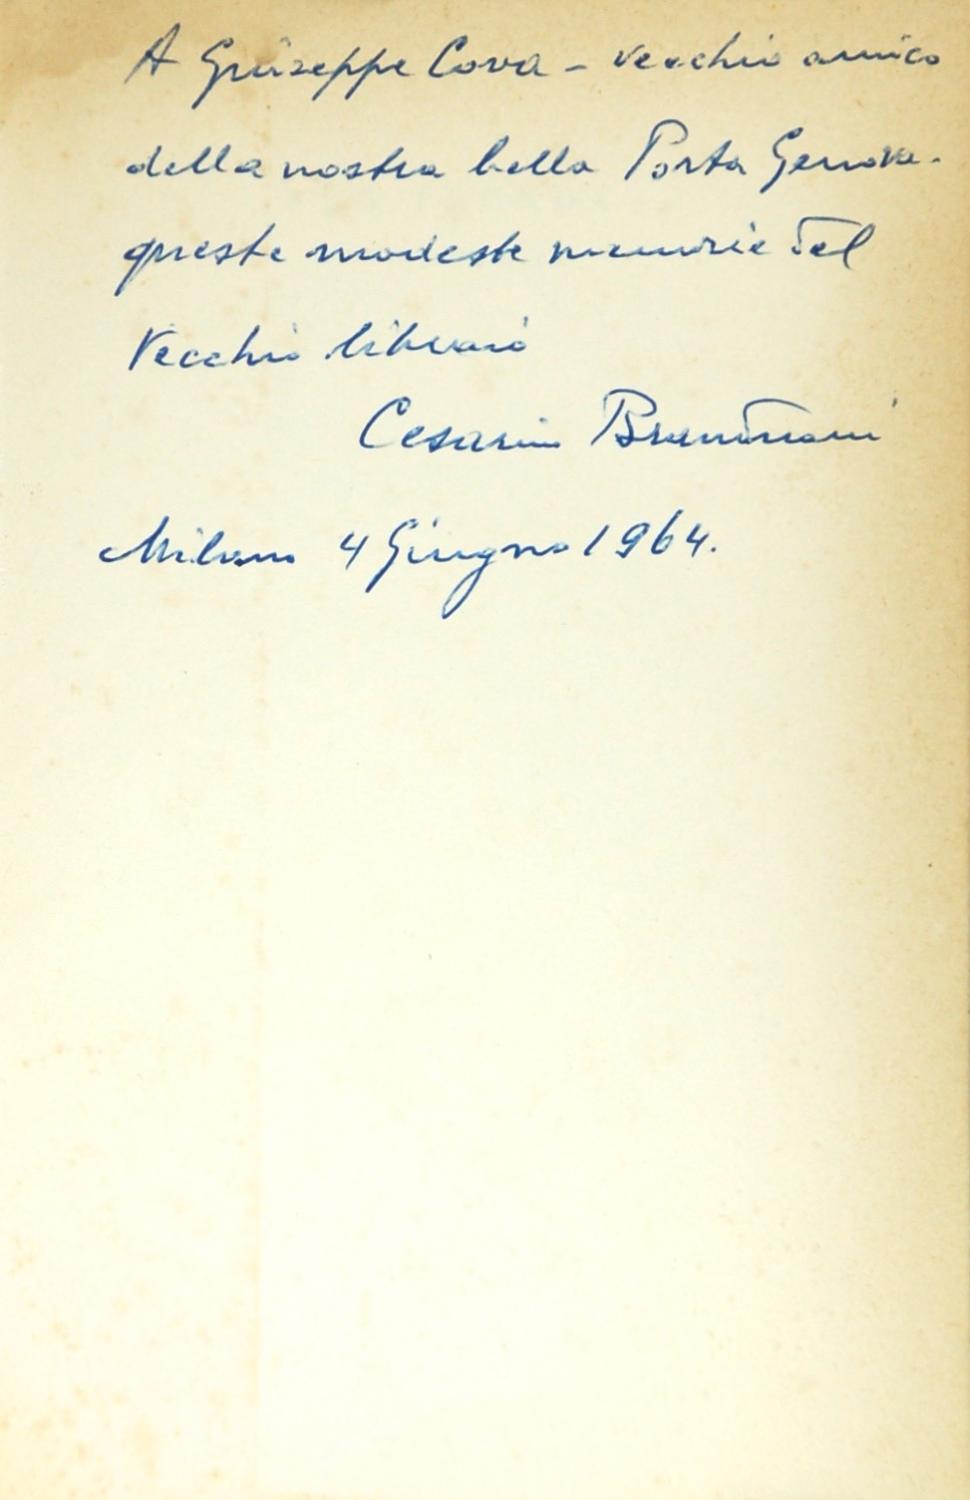 A Giuseppe Cova - vecchio amico
della nostra bella Porta Genova.
queste modeste memorie del
Vecchio libraio
Cesarino Branduani
Milano 4 Giugno 1964.